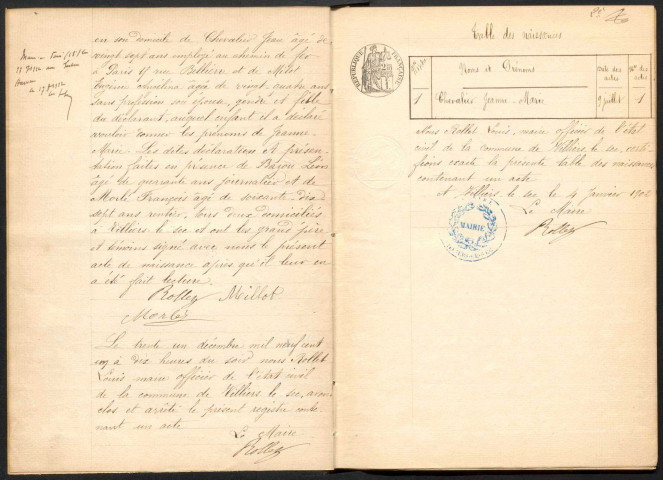 en son domicile de Chevalier Jean âgé de
vingt sept ans employé au chemin de fer
à Paris 17 rue Bellierre et de Milot
Eugénie Christina âgée de vingt quatre ans
sans profession son épouse, gendre et fille
du déclarant, auquel enfant il a déclaré
vouloir donner les prénoms de Jeanne
Marie. Les dites déclaration et présen-
tation faites en présence de Léon
âgé de quarante ans journalier et de
Morlé François âgé de soixante-dix
sept ans rentier, tous deux domiciliés
à Villiers le sec et ont les grand père
et témoins signé avec nous le présent
acte de naissance après qu'il leur en
a été fait lecture.
Rollet Millot
Morlé
Le trente un décembre mil neuf cent
un à dix heures du soir nous Rollet
Louis maire officier de l'état civil
de la commune de Villiers le sec, avons
clos et arrêté le présent registre conte-
nant un acte
Le Maire
Rollet
Table des naissances
RÉPUBLIQUE FRANÇAISE
Noms et Prénoms
Date des actes
Nos des actes
1 Chevalier Jeanne-Marie 9 juillet 1
Nous Rollet Louis, maire officier de l'état
civil de la commune de Villiers le sec, certi-
fions exacte la présente table des naissances
contenant un acte
à Villiers le sec le 4 janvier 1902
Le Maire
MAIRIE
Rollet